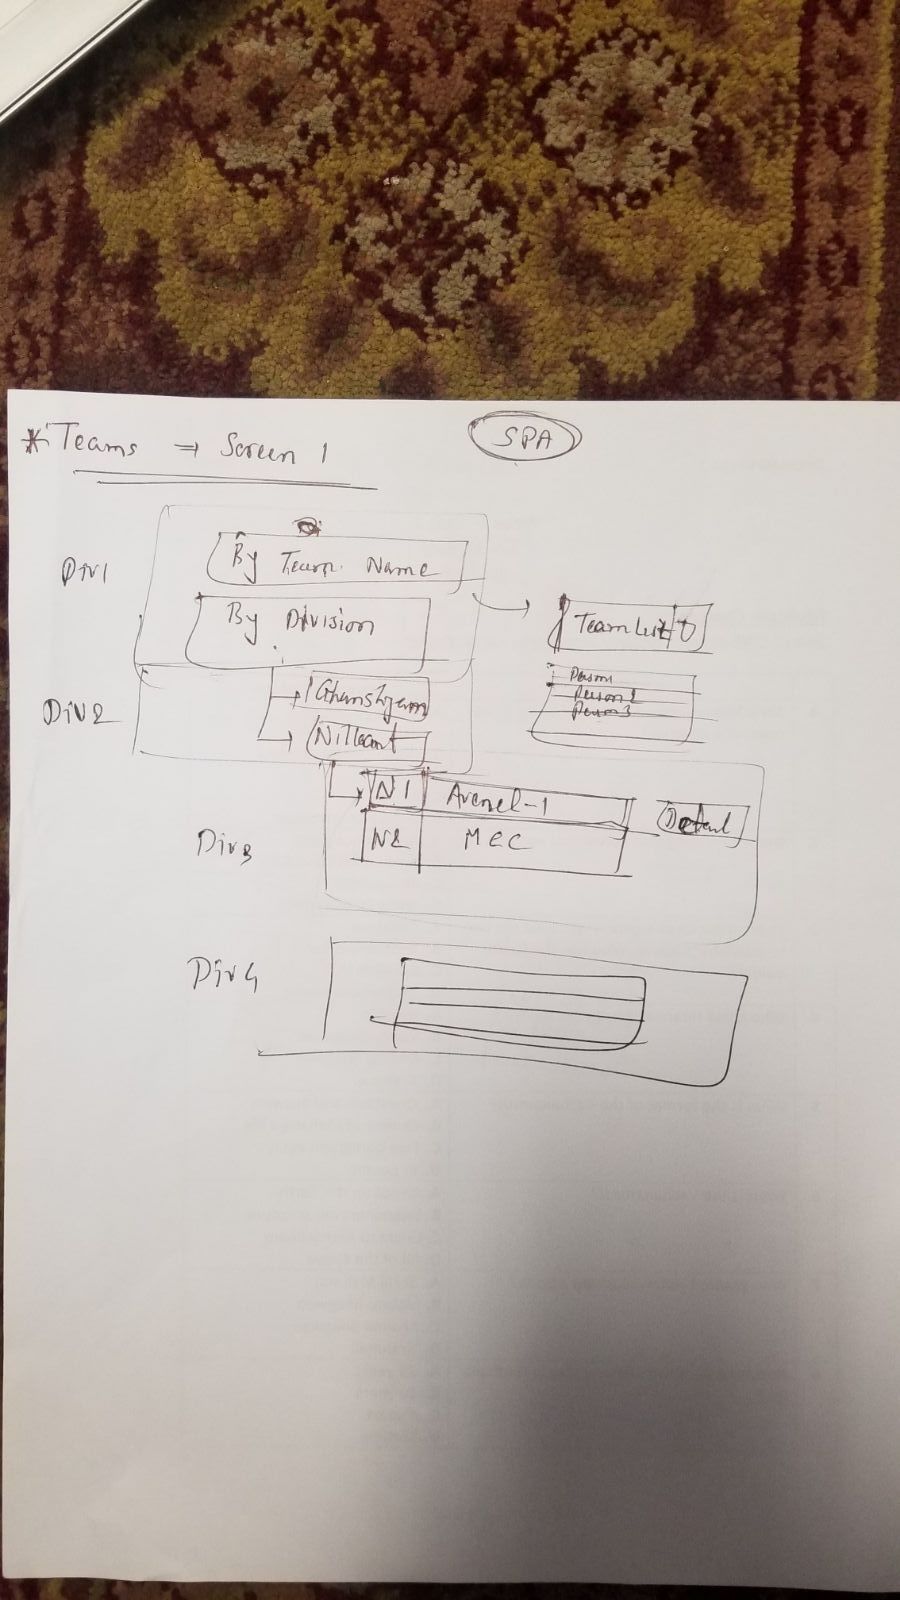 * Teams ⇒ Screen 1
SPA
Div1
By Team Name
By Division
Team List
Person1
Person2
Person3
Div2
Ghanshyam
Nilkant
N1 Avenel-1
Detail
Div3
N2 MCC
Div4